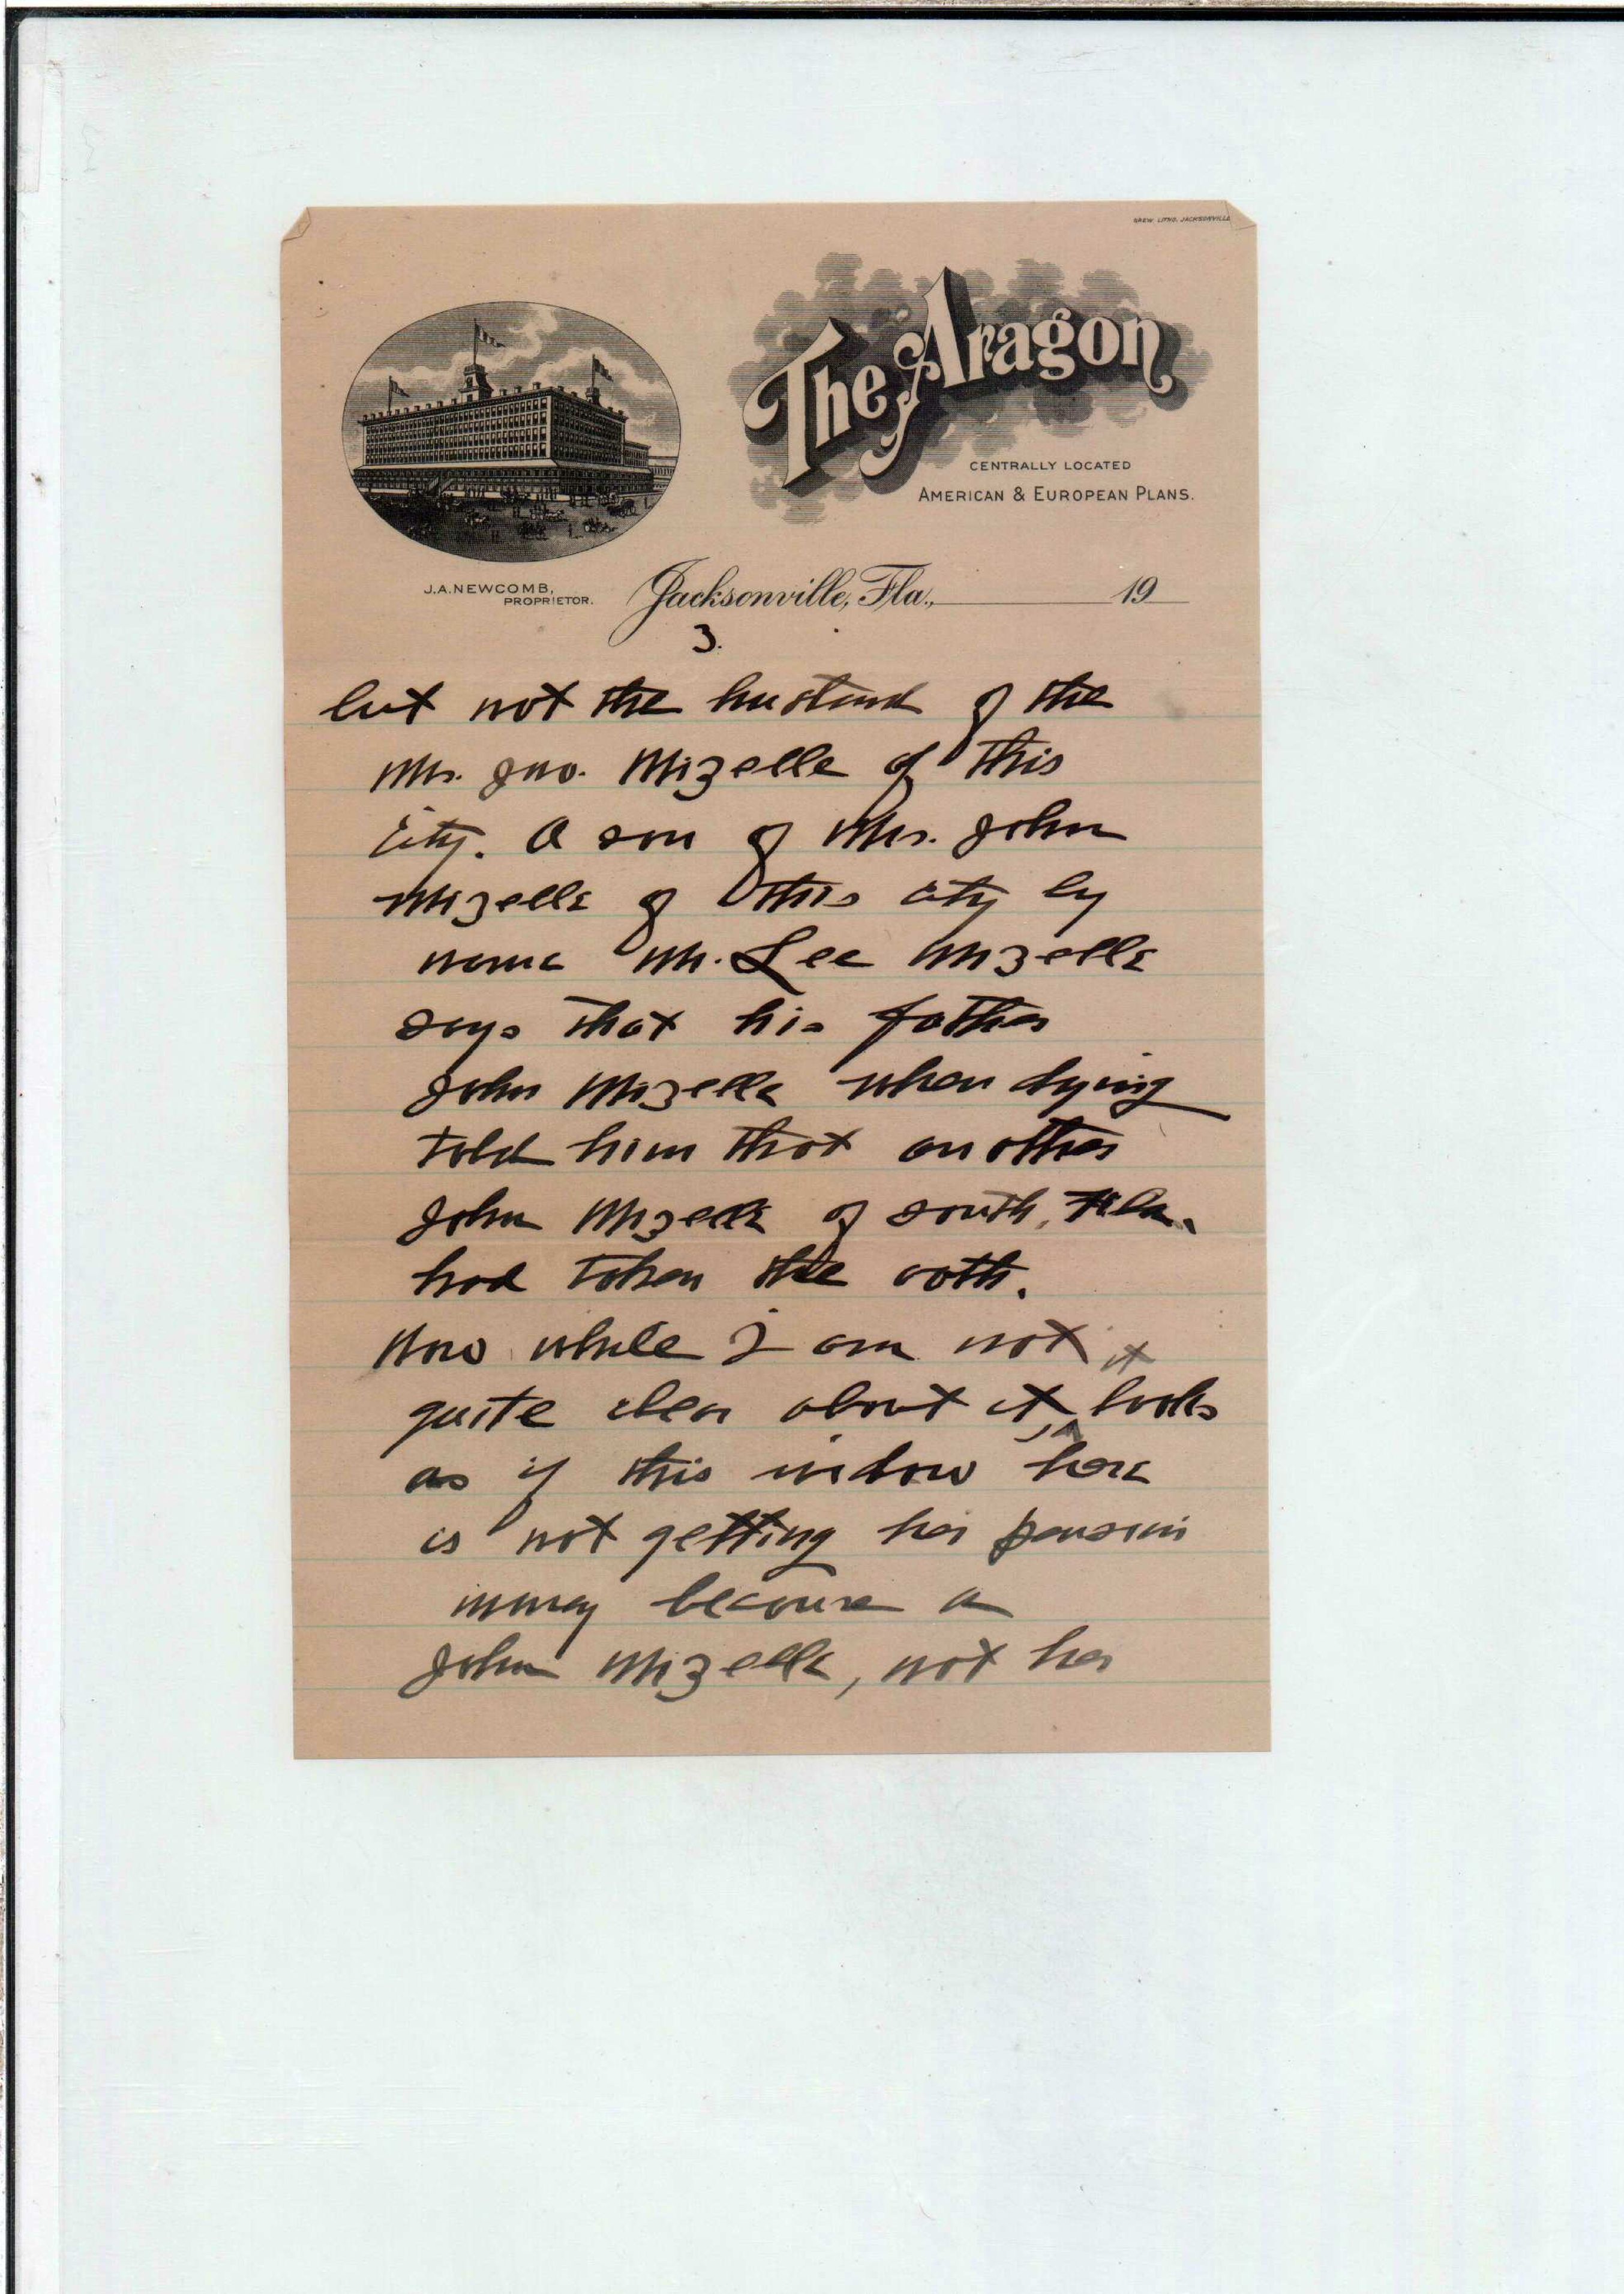 DREW LITHO. JACKSONVILLE
The Aragon
CENTRALLY LOCATED
AMERICAN & EUROPEAN PLANS.
J.A. NEWCOMB,
PROPRIETOR.
Jacksonville, Fla., 19
3.
but not the husband of the
Mrs. Jno. Mizelle of this
city. A son of Mrs. John
Mizelle of this city by
name Mr. Lee Mizelle
says that his father
John Mizelle when dying
told him that another
John Mizelle of south. Fla.
had taken the oath.
Now while I am not
quite clear about it, it looks
as if this widow here
is not getting her pension
money because a
John Mizelle, not her